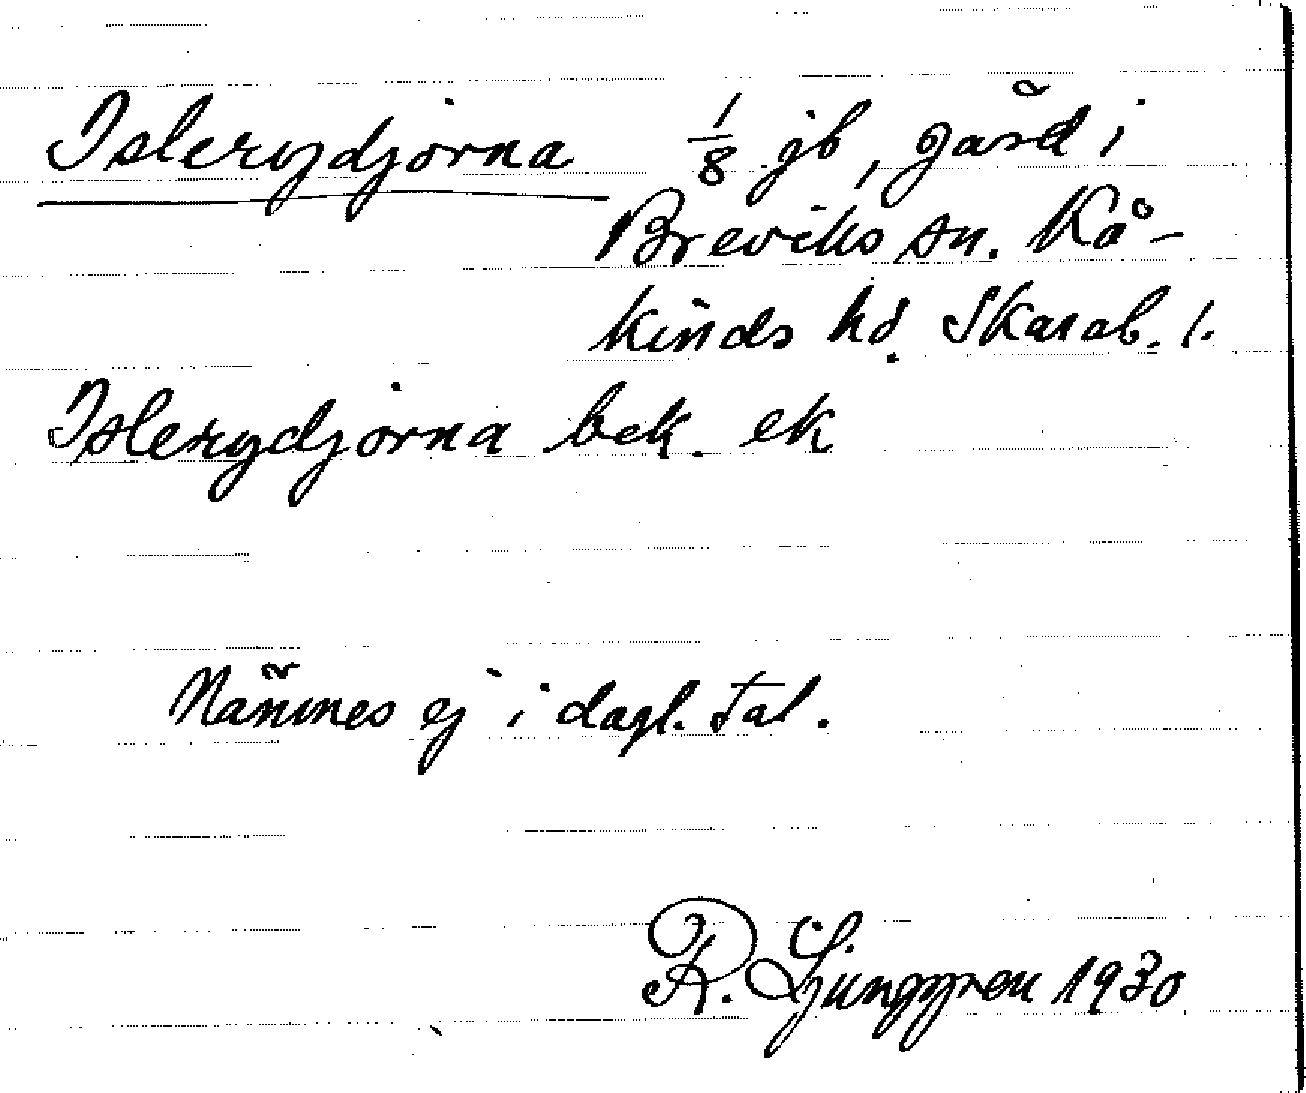 Islerydjorna 1/8 jb, gård i
Breviks sn. Kå-
kinds hd. Skarab. l.
Islerydjorna bek. ek
Nämnes ej i dagl. tal.
R. Ljunggren 1930